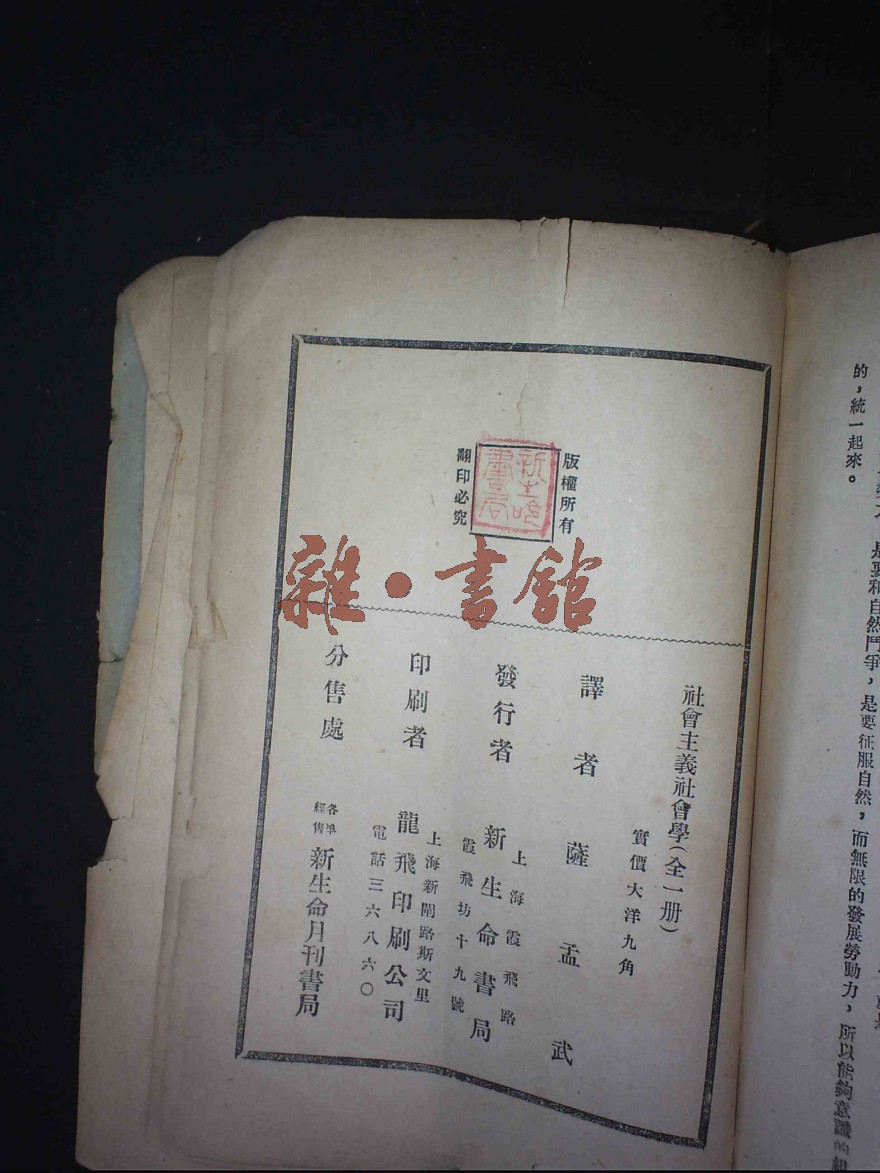 的，統一起來。
是要和自然鬥爭，是要征服自然，而無限的發展勞動力，所以能夠意識的組
版權所有
翻印必究
新生命
書局
雜·書館
社會主義社會學（全一册）
實價大洋九角
譯者 薩孟武
發行者 新生命書局
上海霞飛路
霞飛坊十九號
印刷者 龍飛印刷公司
上海新閘路斯文里
電話三六八六〇
分售處 各埠
經售 新生命月刊書局